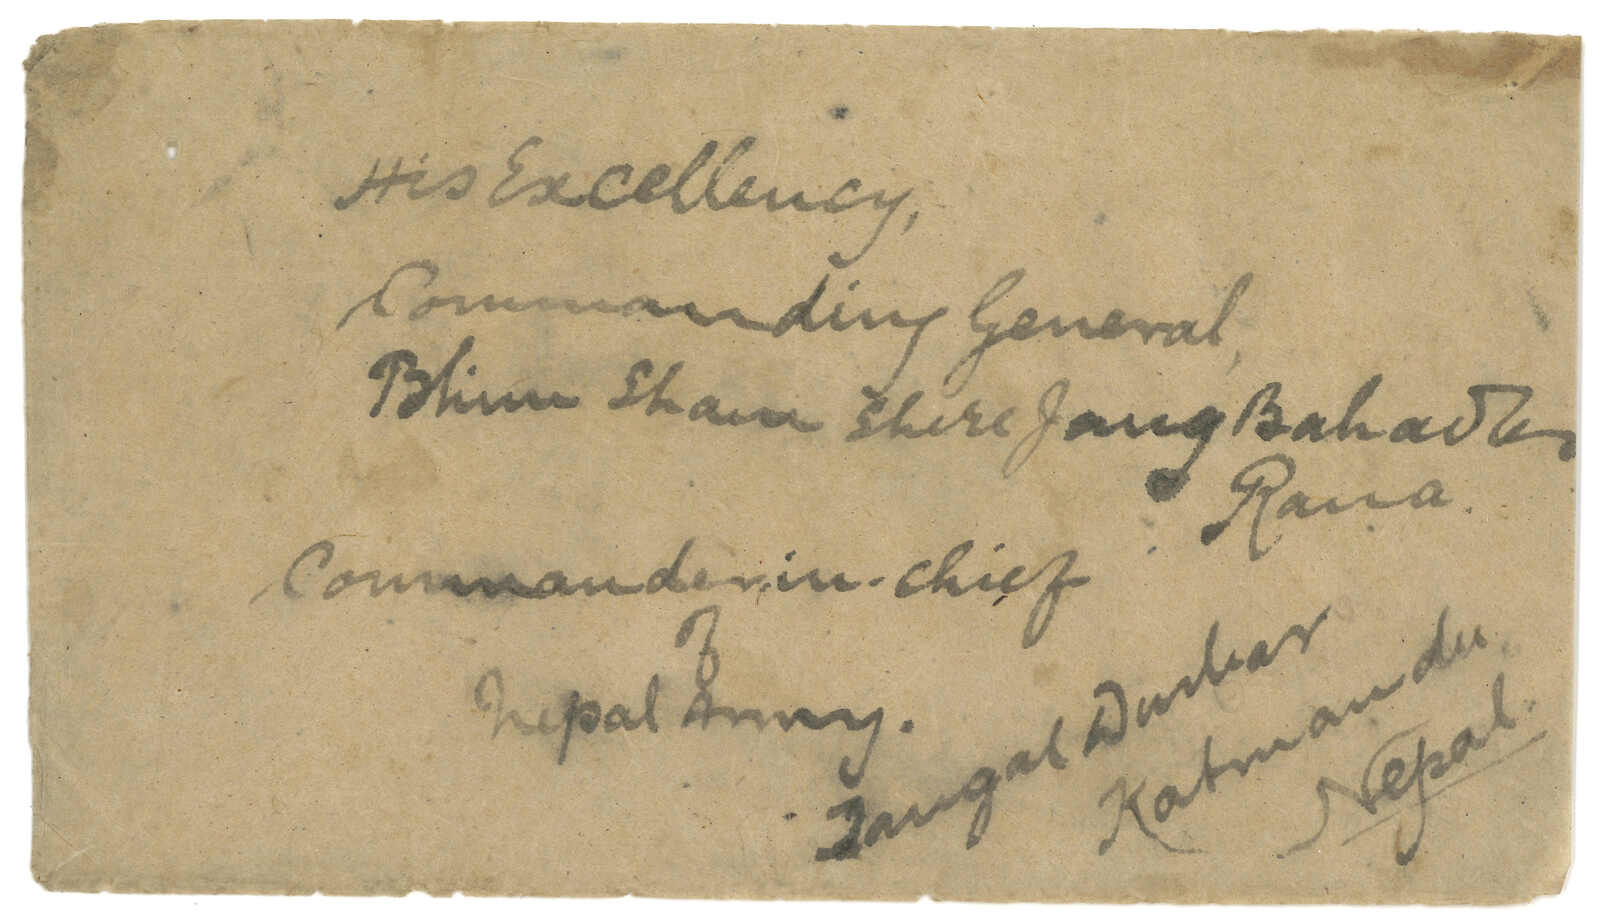 His Excellency,
Commanding General,
Bhim Sham Shere Jang Bahadur
Rana.
Commander-in-chief
of
Nepal Army.
Tangal Durbar
Katmandu
Nepal.